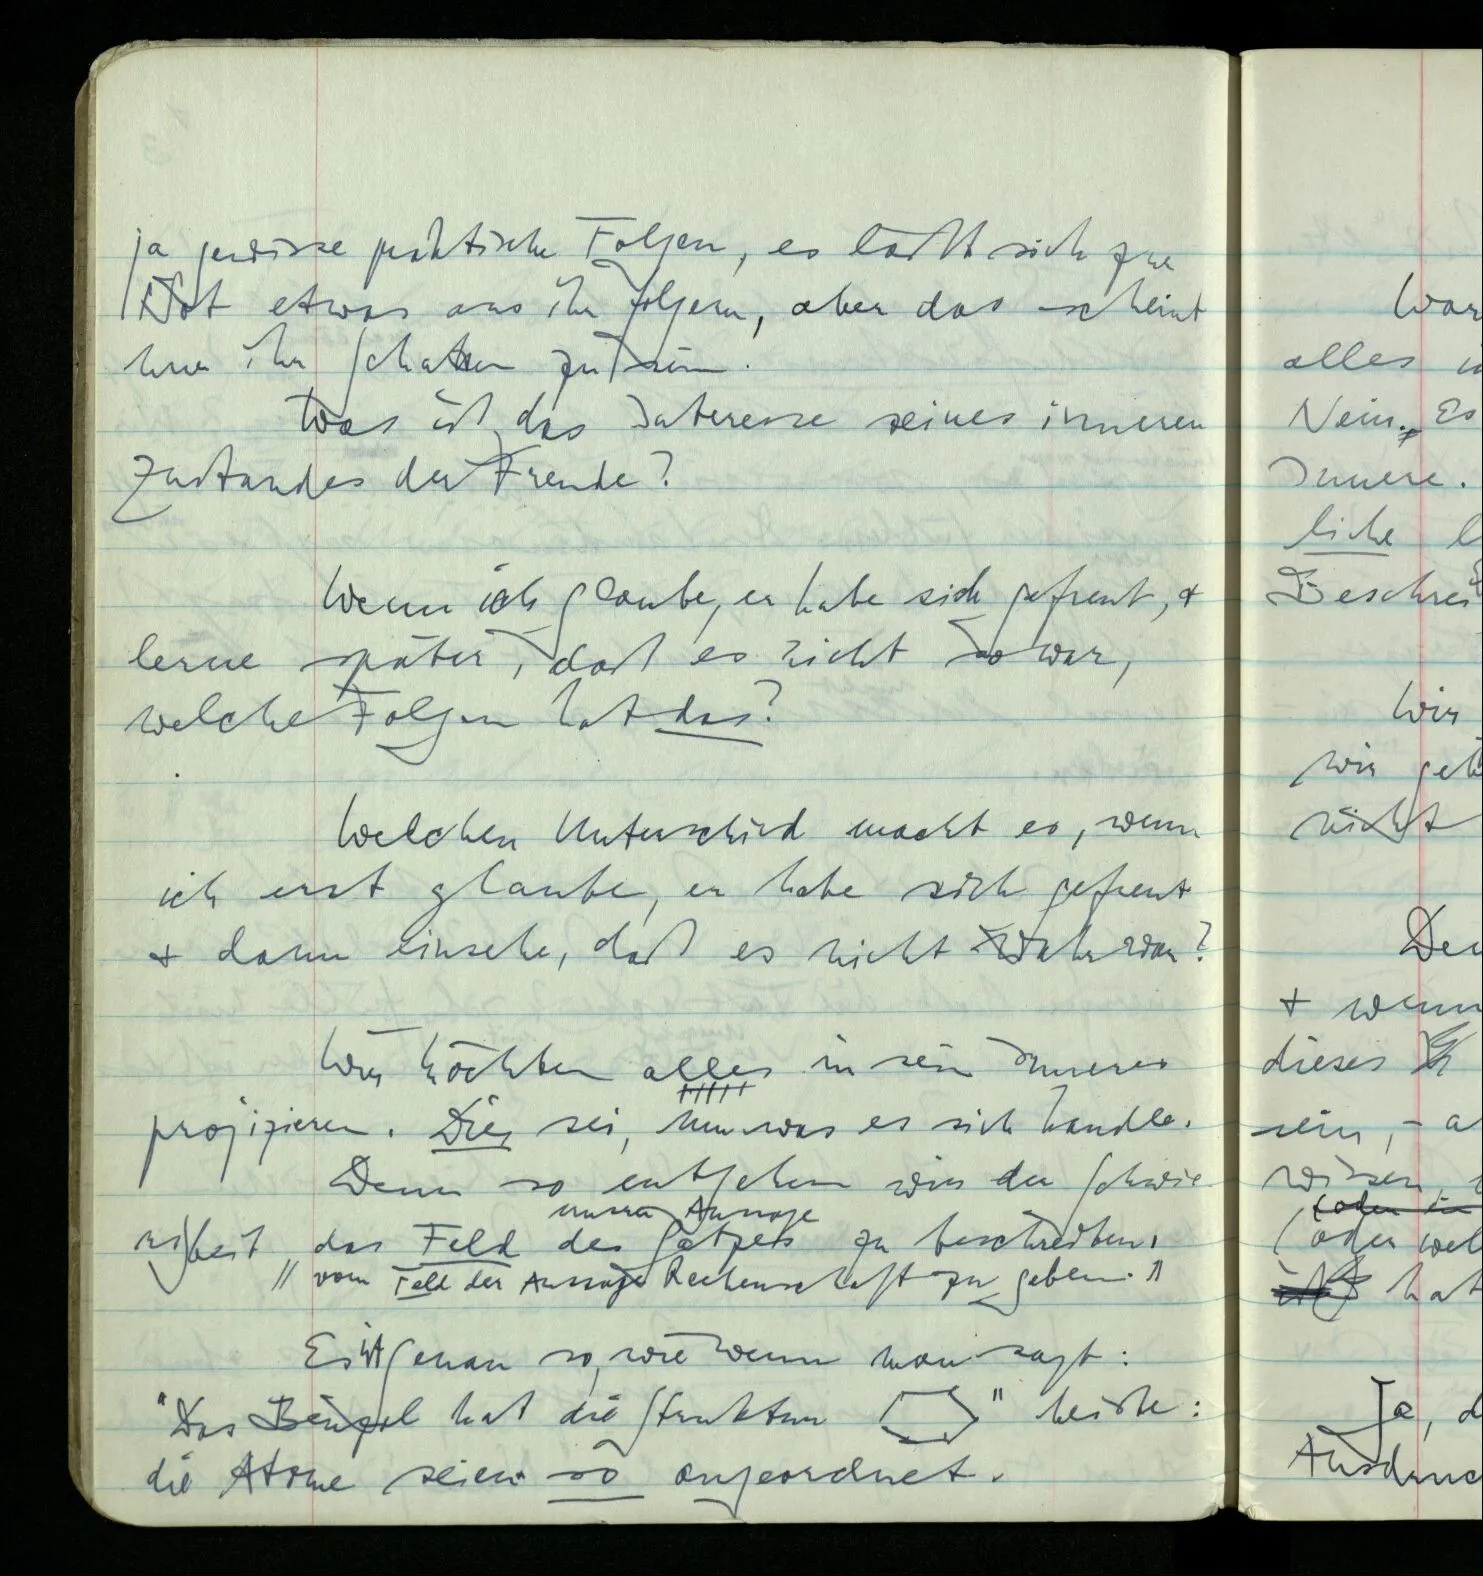 ja gewisse praktische Folgen, es läßt sich zur
Not etwas aus ihr folgern, aber das scheint
nur ihr Schatten zu sein.
Was ist das Interesse seines inneren
Zustandes der Freude?
Wenn ich glaube, er habe sich gefreut, +
lerne später, daß es nicht so war,
welche Folgen hat das?
Welchen Unterschied macht es, wenn
ich erst glaube, er habe sich gefreut
+ dann einsehe, daß es nicht wahr war?
Wir möchten alles in sein Inneres
projizieren. Dies sei, um was es sich handle.
Denn so entgehen wir der Schwie
unsrer Aussage
rigkeit, das Feld des Satzes zu beschreiben.
"vom Feld der Aussage Rechenschaft zu geben."
Es ist genau so, wie wenn man sagt:
"Das Benzol hat die Struktur " heiße:
die Atome seien so angeordnet.
alles
Nein. Es
Innere.
liche
Beschrei
Wir
wir
nicht
+ wenn
dieses
sein, – a
wissen,
(oder in
(oder wel
hat
Ja, d
Ausdruc